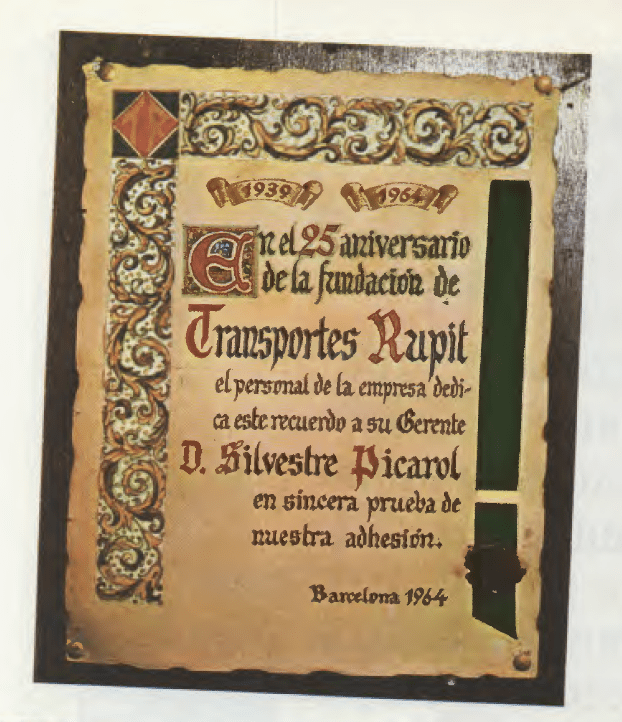 TR
1939 1964
En el 25 aniversario
de la fundación de
Transportes Rupit
el personal de la empresa dedi-
ca este recuerdo a su Gerente
D. Silvestre Picarol
en sincera prueba de
nuestra adhesión.
Barcelona 1964